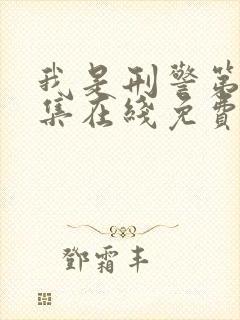 我是刑警第
集在綫免費
鄧霜丰